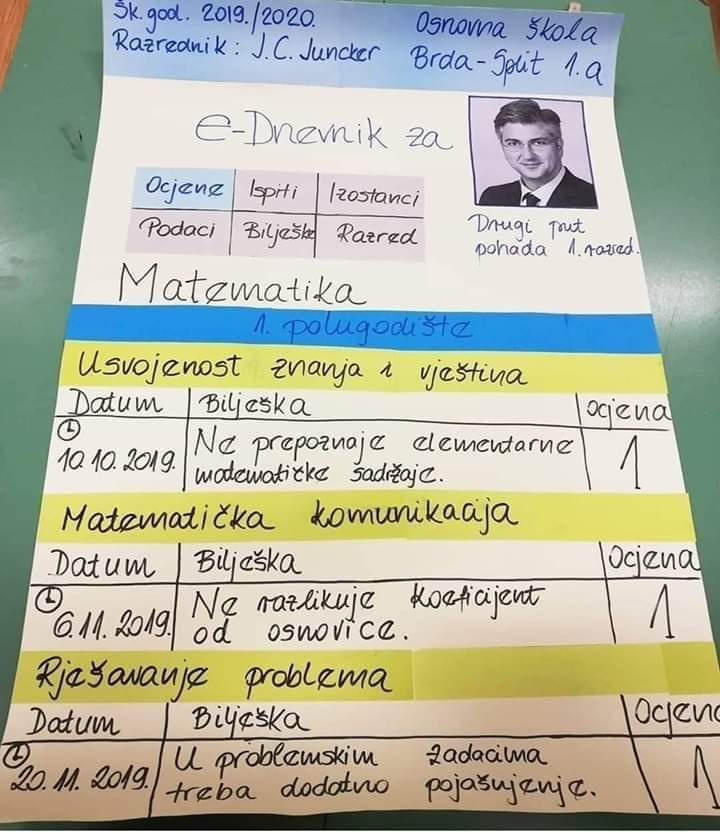 Šk. god. 2019./2020.
Razrednik: J.C. Juncker
Osnovna škola
Brda-Split 1.a
e-Dnevnik za
Ocjene Ispiti Izostanci
Podaci Bilješke Razred
Drugi put
pohađa 1. razred.
Matematika
1. polugodište
Usvojenost znanja i vještina
Datum Bilješka Ocjena
10.10.2019. Ne prepoznaje elementarne
matematičke sadržaje.
1
Matematička komunikacija
Datum Bilješka Ocjena
6.11.2019. Ne razlikuje koeficijent
od osnovice.
1
Rješavanje problema
Datum Bilješka Ocjena
20.11.2019. U problemskim zadacima
treba dodatno pojašnjenje.
1